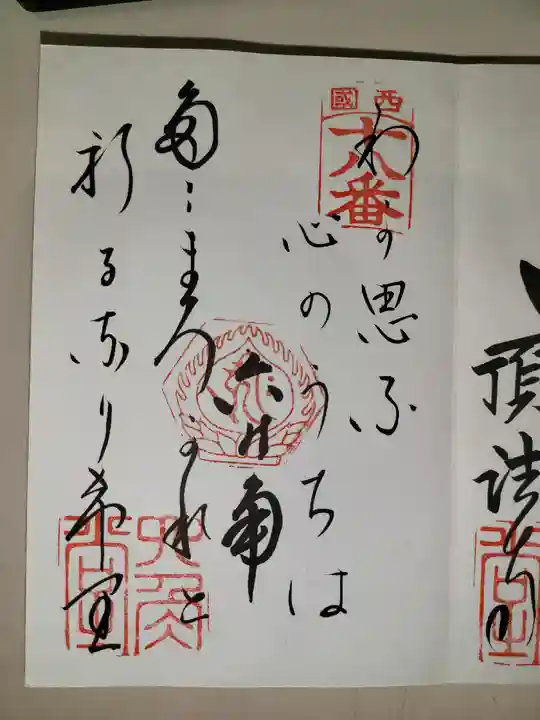 頂法寺
西國
十八番
わが思ふ
心のうちは
六の角
たゝまろかれと
祈るなりけり
六角堂